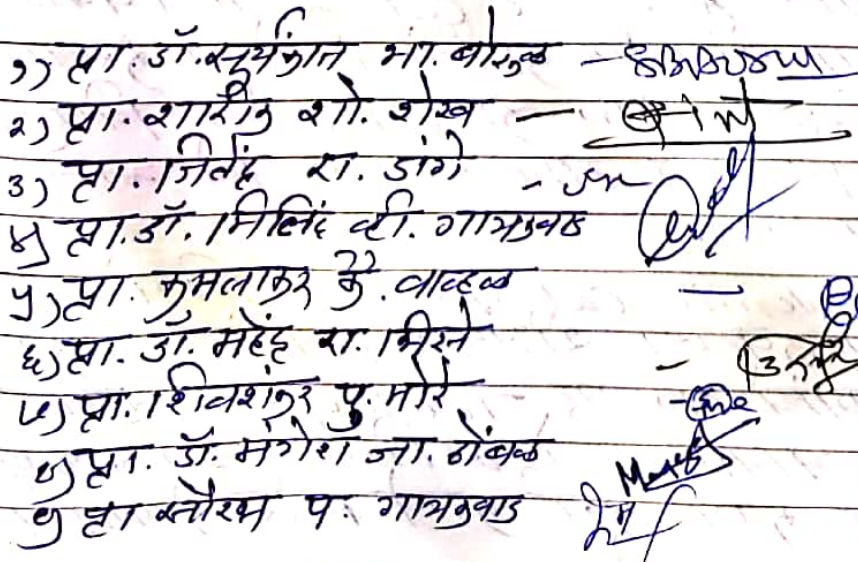 १) प्रा. डॉ. सूर्यकांत भा. बोरुळ -
२) प्रा. शारीक शो. शेख -
३) प्रा. जितेंद्र रा. डांगे -
४) प्रा. डॉ. मिलिंद व्ही. गायकवाड
५) प्रा. कमलाकर के. वाव्हळ -
६) प्रा. डॉ. महेंद्र रा. -
७) प्रा. शिवशंकर पु. मोरे -
८) प्रा. डॉ. मंगेश जा.
९) प्रा सौरभ प. गायकवाड